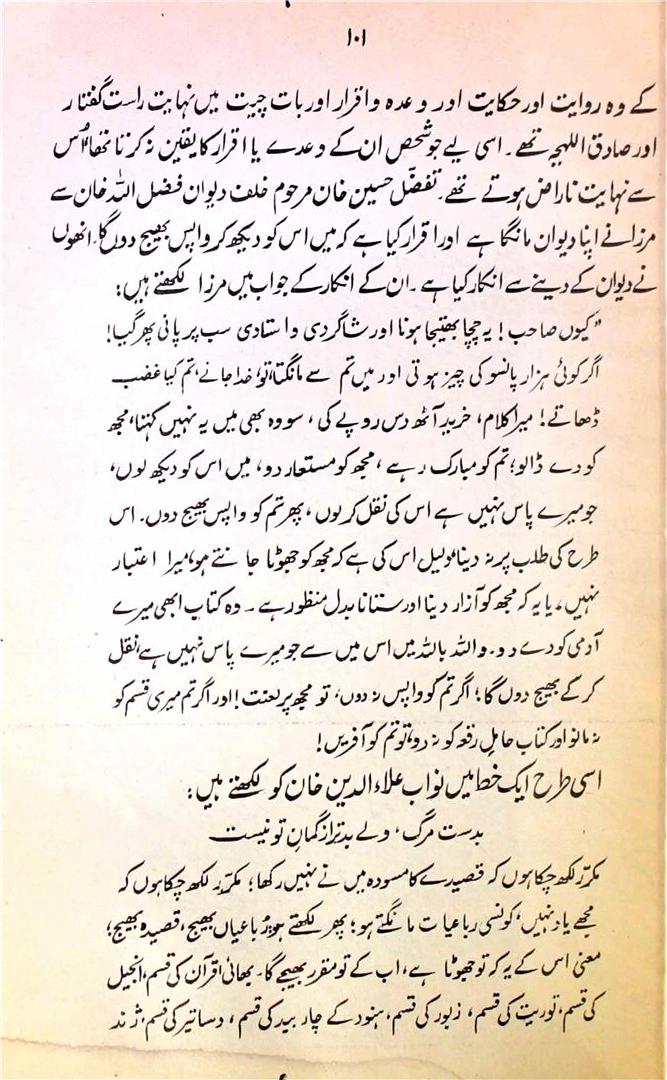 ۱۰۱
کے وہ روایت اور حکایت اور وعدہ و اقرار اور بات چیت میں نہایت راست گفتار
اور صادق اللہجہ تھے۔ اسی لیے جو شخص ان کے وعدے یا اقرار کا یقین نہ کرتا تھا، اُس
سے نہایت ناراض ہوتے تھے۔ تفضّل حسین خان مرحوم خلف دیوان فضل اللہ خان سے
مرزا نے اپنا دیوان مانگا ہے اور اقرار کیا ہے کہ میں اس کو دیکھ کر واپس بھیج دوں گا۔ انھوں
نے دیوان کے دینے سے انکار کیا ہے۔ ان کے انکار کے جواب میں مرزا لکھتے ہیں:
"کیوں صاحب! یہ چچا بھتیجا ہونا اور شاگردی و استادی سب پر پانی پھر گیا!
اگر کوئی ہزار پانسو کی چیز ہوتی اور میں تم سے مانگتا، تو خدا جانے، تم کیا غضب
ڈھاتے! میرا کلام، خرید آٹھ دس روپے کی، سو وہ بھی میں یہ نہیں کہتا، مجھ
کو دے ڈالو؛ تم کو مبارک رہے، مجھ کو مستعار دو، میں اس کو دیکھ لوں،
جو میرے پاس نہیں ہے اس کی نقل کر لوں، پھر تم کو واپس بھیج دوں۔ اس
طرح کی طلب پر نہ دینا، دلیل اس کی ہے کہ مجھ کو جھوٹا جانتے ہو، میرا اعتبار
نہیں، یا یہ کہ مجھ کو آزار دینا اور ستانا بدل منظور ہے۔ وہ کتاب ابھی میرے
آدمی کو دے دو۔ واللہ باللہ میں اس میں سے جو میرے پاس نہیں ہے، نقل
کر کے بھیج دوں گا؛ اگر تم کو واپس نہ دوں، تو مجھ پر لعنت! اور اگر تم میری قسم کو
نہ مانو اور کتاب حاملِ رقعہ کو نہ دو، تو تم کو آفریں!
اسی طرح ایک خط میں نواب علاء الدین خان کو لکھتے ہیں:
بدست مرگ، ولے بدتر از گمانِ تو نیست
مکرّر لکھ چکا ہوں کہ قصیدے کا مسودہ میں نے نہیں رکھا؛ مکرّر لکھ چکا ہوں کہ
مجھے یاد نہیں، کونسی رباعیات مانگتے ہو؛ پھر لکھتے ہو، رُباعیاں بھیج، قصیدہ بھیج؛
معنی اس کے یہ کہ تو جھوٹا ہے، اب کے تو مقرر بھیجے گا۔ بھائی! قرآن کی قسم، انجیل
کی قسم، توریت کی قسم، زبور کی قسم، ہنود کے چار بید کی قسم، دساتیر کی قسم، ژند